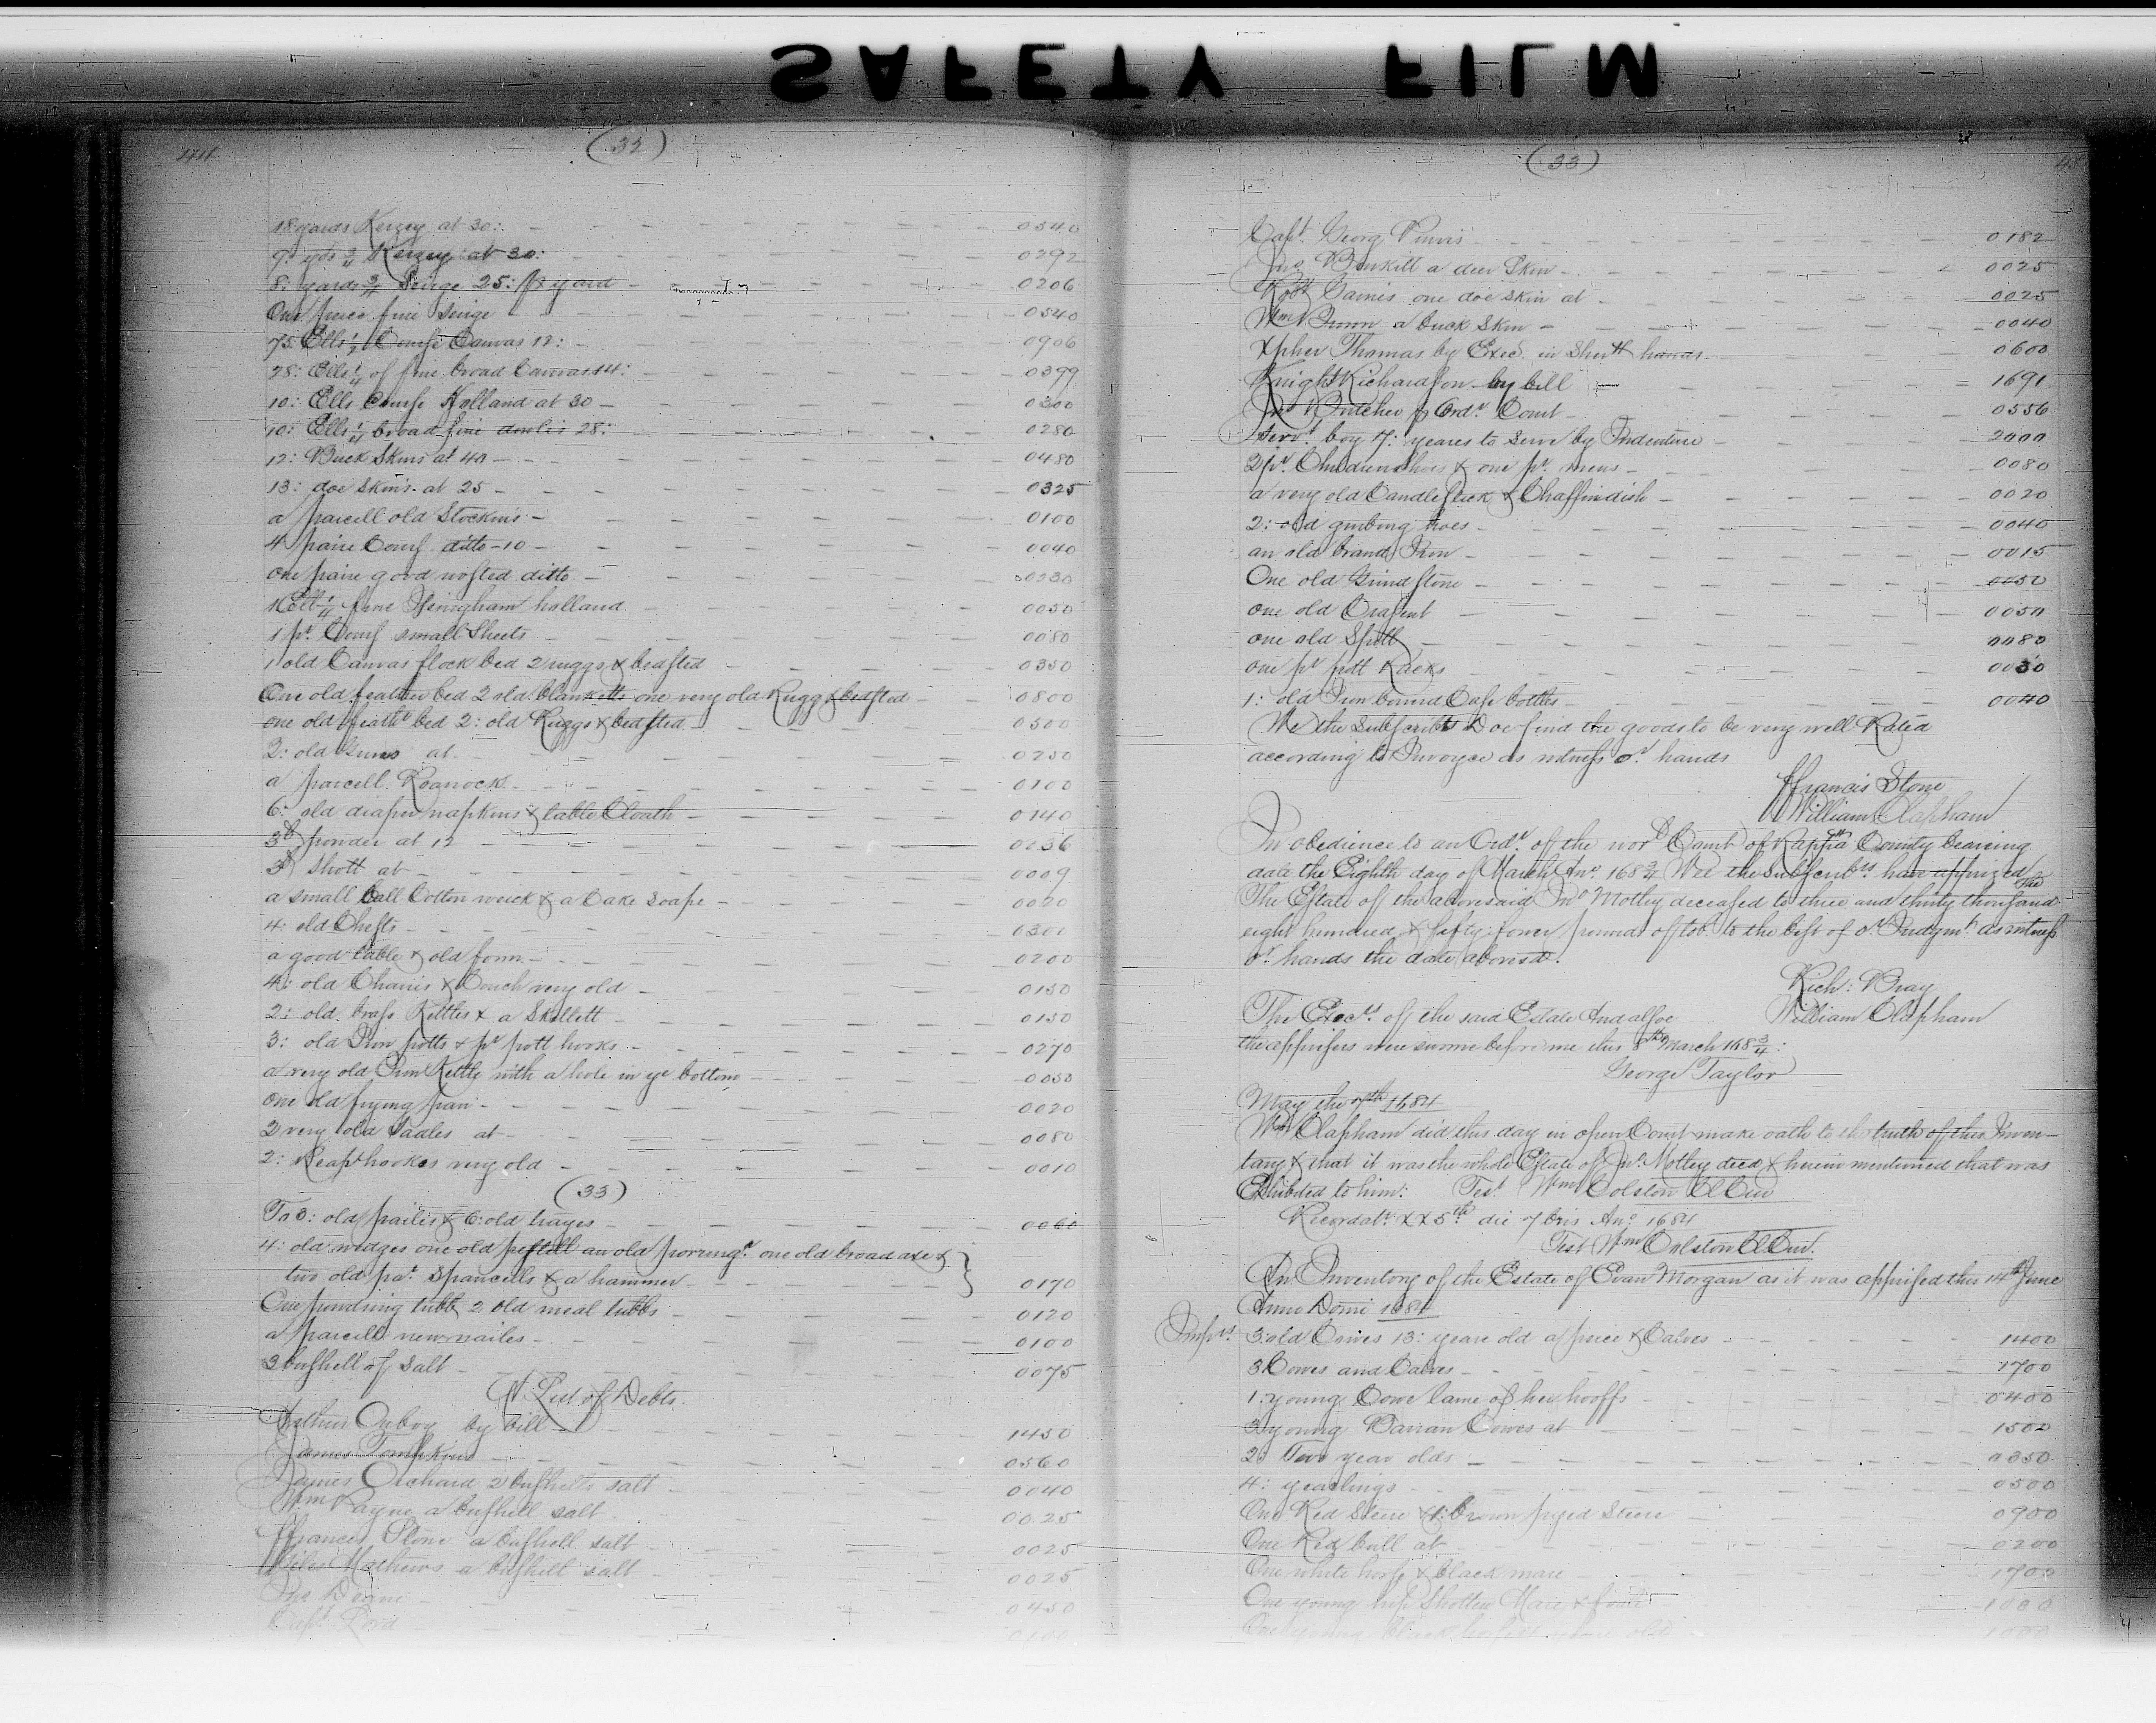 SAFETY FILM
44
(32)
18 yards Kerzey at 30: 0540
9: yds 3/4 Kerzey at 30: 0292
8: yards 3/4 Seirge 25: p yard 0206
One peece fine Seirge 0540
75 Ells 1/2 Course Canvas 12: 0906
28: Ells 1/4 of fine broad Canvas 14: 0399
10: Ells Course Holland at 30 0300
10: Ells 1/4 broad fine dowlis 28: 0280
12: Buck Skins at 40 0480
13: doe Skins at 25 0325
a parcell old Stockins 0100
4 paire Cours ditto-10 0040
one paire good wosted ditto 0030
1 Ell 1/4 fine holland 0050
1 pr. Cours small Sheets 0080
1 old Canvas flock bed 2 ruggs & bedsted 0350
One old feather bed 2 old blanketts one very old Rugg & bedsted 0800
one old feathr bed 2: old Ruggs & bedsted 0500
2: old Guns at 0250
a parcell Roanock 0100
6: old diaper napkins & table Cloath 0140
3 lb powder at 12 0036
3 lb shott at 0009
a small ball Cotton weick & a Cake Soape 0020
4: old Chests 0300
a good table & old form 0200
4: old Chairs & Couch very old 0150
2: old brass Kettles & a Skillett 0150
3: old Iron potts & pr pott hooks 0270
a very old Iron Kettle with a hole in ye bottom 0050
One old frying pan 0020
2 very old Sadles at 0080
2: Reaphookes very old 0010
(33)
To 3: old pailes & 6: old trayes 0060
4: old wedges one old pestell an old porringr. one old broad axe &
two old par. Spancells & a hammer 0170
One powdring tubb 2 old meal tubbs 0120
a parcell new nailes 0100
3 bushell of salt 0075
A List of Debts
Arthur Onboy by bill 1450
James Tompkins 0560
James Orchard 2 bushells salt 0040
Wm Payne a bushell salt 0025
ffrancis Stone a bushell salt 0025
Giles Mathews a bushell salt 0025
0450
Capt. Lord
45
(33)
Capt. Georg Purvis 0182
Jno a deer Skin 0025
Robt Gaines one doe skin at 0025
Wm Brown a buck Skin 0040
Xpher Thomas by Exec. in Sherff hands 0600
Knight Richardson by bill 1691
Jno Butcher p Ordr. Court 0556
Servt. boy 7: yeares to serve by Indenture 2000
2 pr. Childrens shoes & one pr. mens 0080
a very old Candlestick & Chaffindish 0020
2: old grubing hoes 0040
an old brand Iron 0015
One old Grindstone 0050
one old 0050
one old Spitt 0080
one pr pott Racks 0030
1: old Iron bound Case bottles 0040
We the Subscribrs Doe find the goods to be very well Rated
according to Invoyce as witness or. hands
ffrancis Stone
William Clapham
In obedience to an Ordr. of the worll Court of Rappa County bearing
date the Eighth day of March Ano. 168 3/4 Wee the Subscribrs. have apprized the
The Estate of the abovesaid Jno Motley deceased to three and thirty thousand
eight hundred & fifty fower pounds of tob. to the best of or Judgmt. as witness
or. hands the date abovesd.
Rich: Bray
William Clapham
The Execrs. of the said Estate And allsoe
the apprisers were sworne before me this 8th March 168 3/4:
George Taylor
May the 7th 1684
Wm Clapham did this day in open Court make oath to the truth of this Inven-
tary & that it was the whole Estate of Jno. Motley decd & herein mentioned that was
Exhibited to him: Test Wm Colston Cl Cur
Recordatr. XX5th die 7bris Ano. 1684
Test Wm Colston Cl Cur.
An Inventory of the Estate of Evan Morgan as it was apprised this 14th June
Anno Domi 1684
Imprs. 3 old Cowes 13: yeare old a peice & Calves 1400
3 Cowes and Calves 1700
1: young Cowe lame of her hooffs 0400
3 young Barran Cowes at 1500
2: Two year olds 0350
4: yearlings 0500
One Red Steere & 1: brown pyed Steere 0900
One Red bull at 0200
One white horse & black mare 1700
One young Mare & foale 1000
One young black old 1000